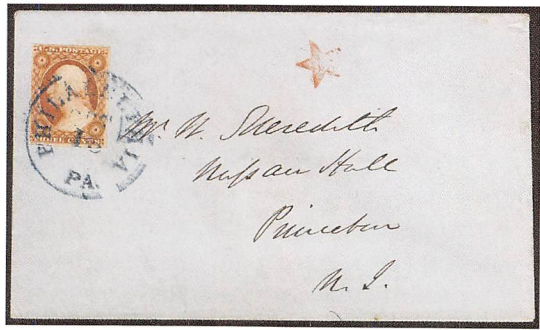 U.S. POSTAGE
THREE CENTS
PHILADELPHIA
PA.
Mr. W. Meredith
Nassau Hall
Princeton
N. J.